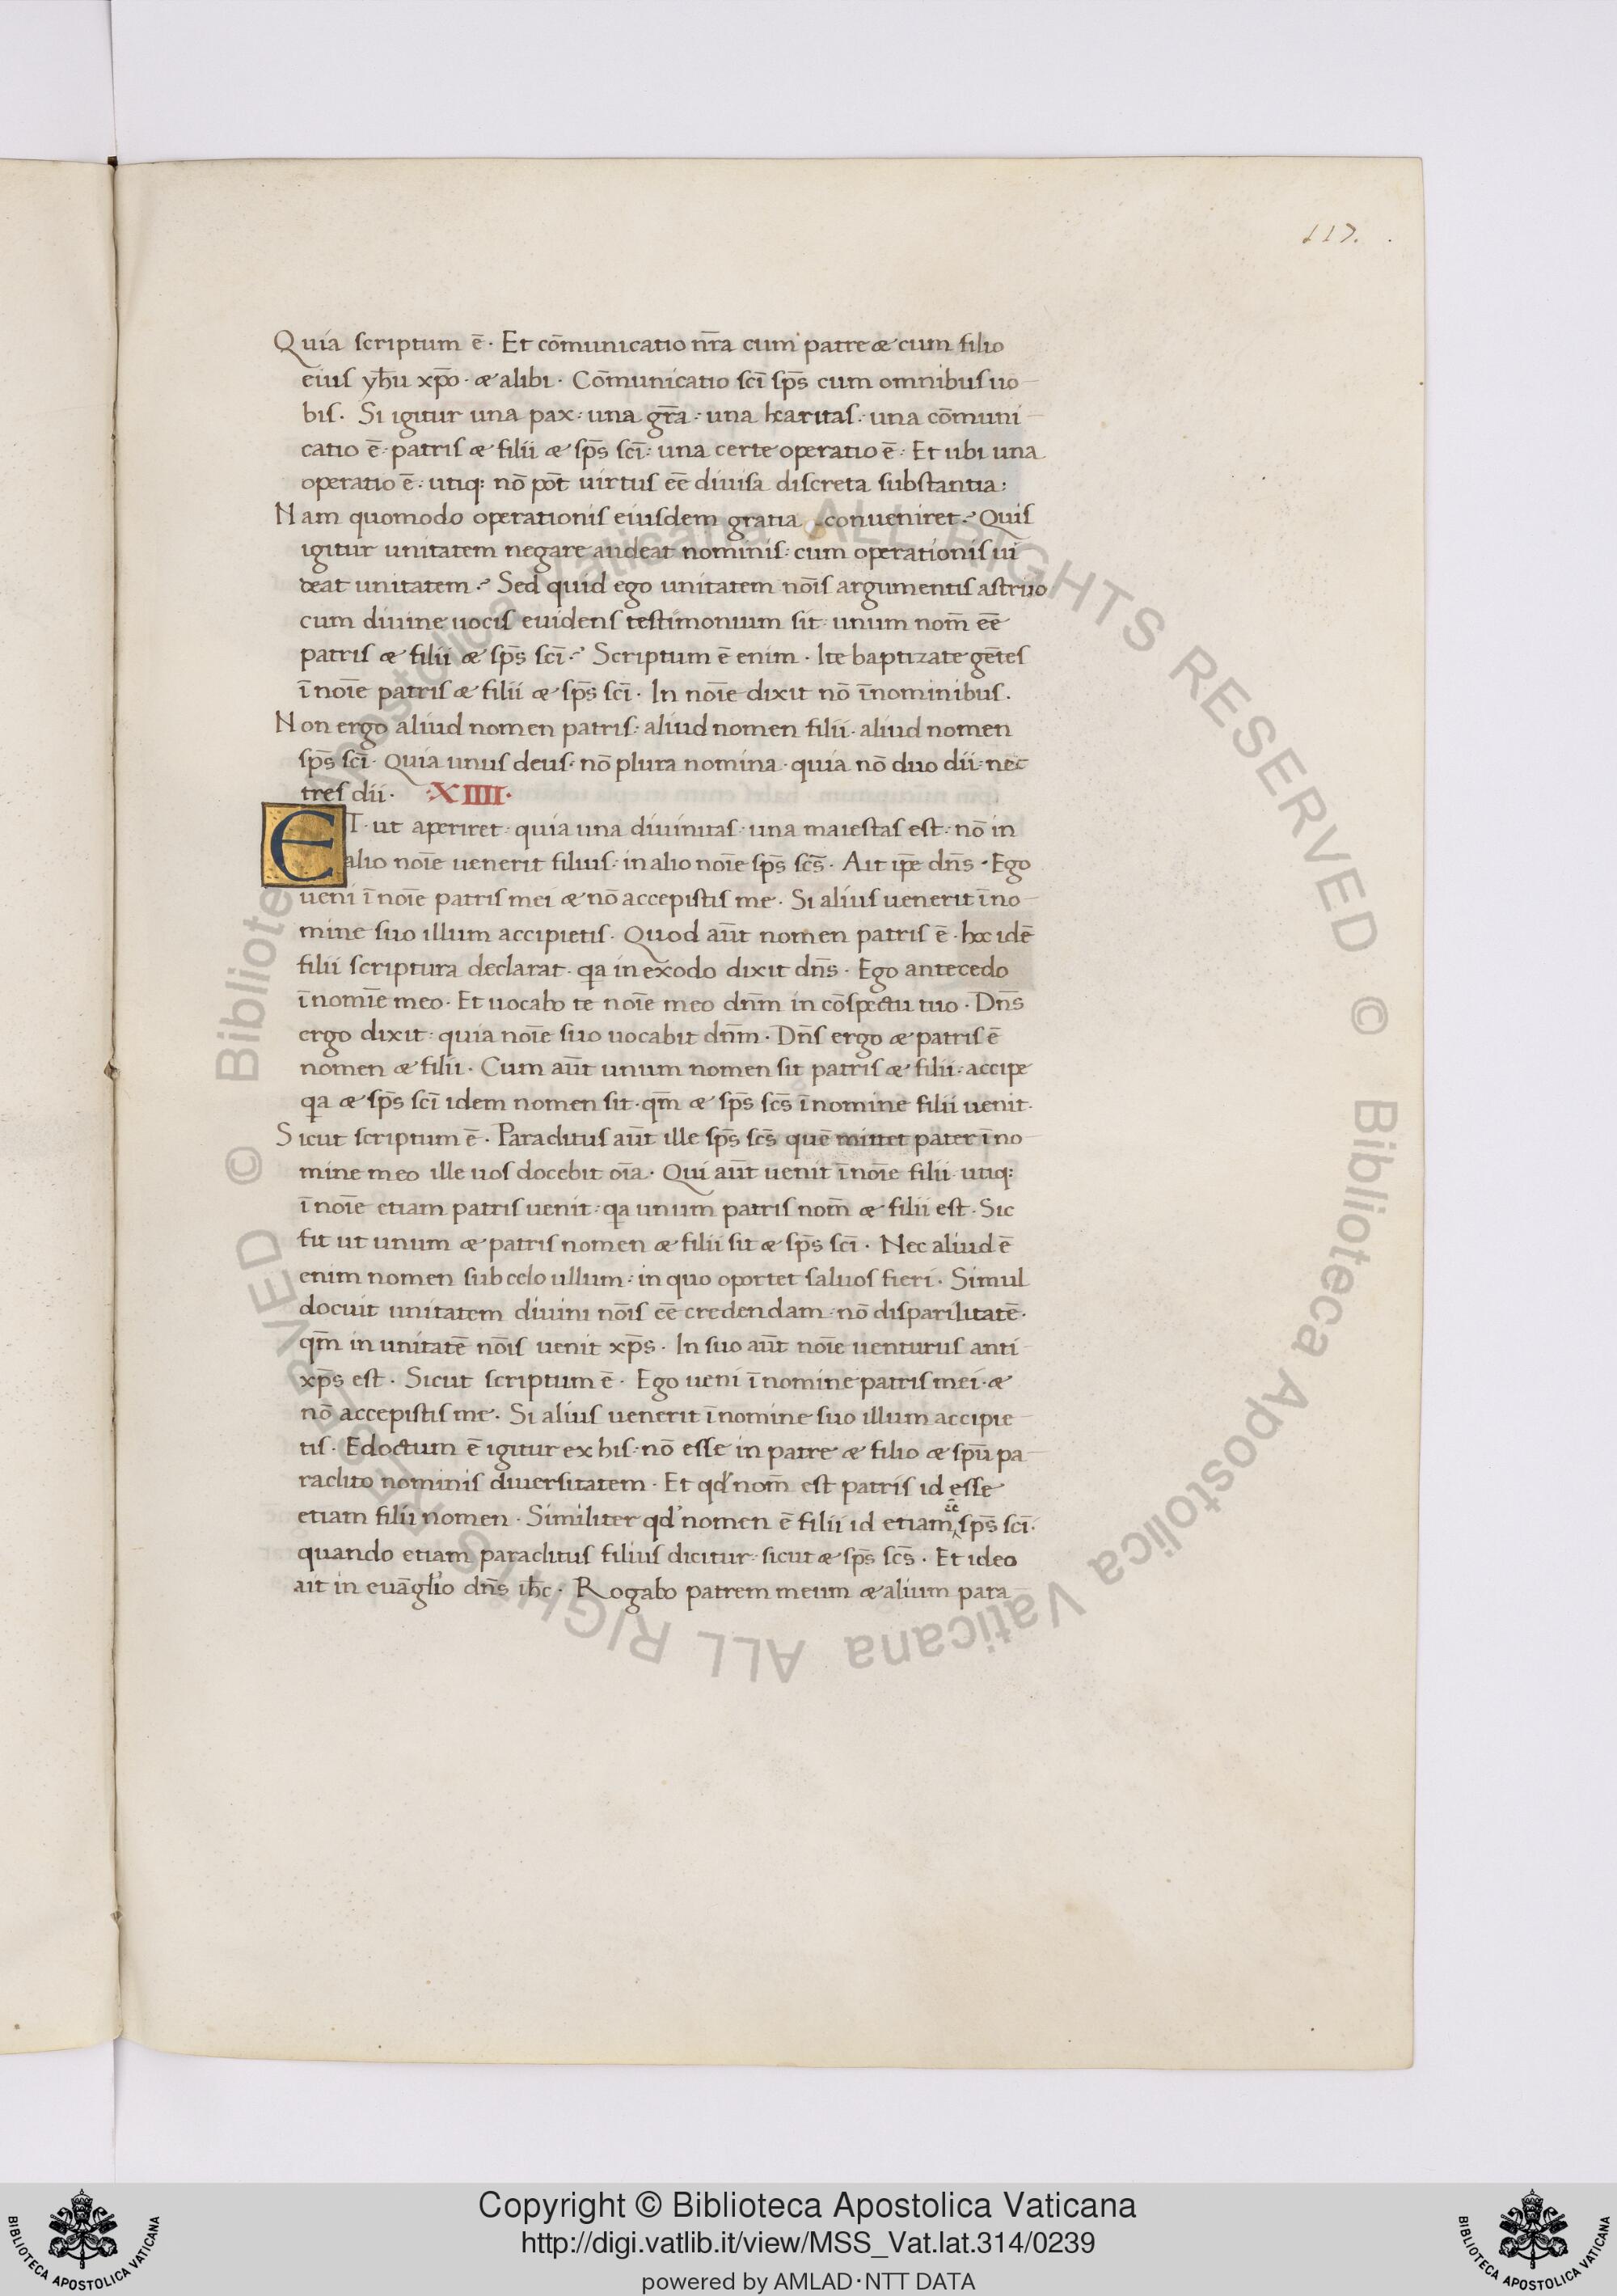 117.
Quia scriptum ē· Et cōmunicatio nr̄a cum patre & cum filio
eius yh̄u xp̄o· & alibi· Cōmunicatio sc̄i sp̄s cum omnibus uo
bis· Si igitur una pax: una gr̄a: una karitas: una cōmuni
catio ē: patris & filii & sp̄s sc̄i: una certe operatio ē· Et ubi una
operatio ē: utiq: nō pōt uirtus eē diuisa discreta substantia:
Nam quomodo operationis eiusdem gratia conueniret? Quis
igitur unitatem negare audeat nominis: cum operationis ui
deat unitatem? Sed quid ego unitatem nōis argumentis astruo
cum diuine uocis euidens testimonium sit: unum nom̄ eē
patris & filii & sp̄s sc̄i? Scriptum ē enim· Ite baptizate gētes
ī noīe patris & filii & sp̄s sc̄i· In noīe dixit nō ī nominibus.
Non ergo aliud nomen patris· aliud nomen filii· aliud nomen
sp̄s sc̄i· Quia unus deus: nō plura nomina· quia nō duo dii: nec
tres dii· ·XIIII·
ET· ut aperiret: quia una diuinitas: una maiestas est: nō in
alio noīe uenerit filius· in alio noīe sp̄s sc̄s· Ait ip̄e dn̄s· Ego
ueni ī noīe patris mei & nō accepistis me· Si alius uenerit ī no
mine suo illum accipietis· Quod aūt nomen patris ē· hoc idē
filii scriptura declarat· qa in exodo dixit dn̄s· Ego antecedo
ī nomīe meo· Et uocabo te noīe meo dn̄m in cōspectu tuo· Dn̄s
ergo dixit: quia noīe suo uocabit dn̄m· Dn̄s ergo & patris ē
nomen & filii· Cum aūt unum nomen sit patris & filii: accipe
qa & sp̄s sc̄i idem nomen sit· qm̄ & sp̄s sc̄s ī nomine filii uenit·
Sicut scriptum ē· Paraclitus aūt ille sp̄s sc̄s quē mittet pater ī no
mine meo ille uos docebit oīa· Qui aūt uenit ī noīe filii· utiq:
ī noīe etiam patris uenit: qa unum patris nom̄ & filii est· Sic
fit ut unum & patris nomen & filii sit & sp̄s sc̄i· Nec aliud ē
enim nomen sub celo ullum: in quo oportet saluos fieri· Simul
docuit unitatem diuini nōis eē credendam: nō disparilitatē·
qm̄ in unitatē nōis uenit xp̄s· In suo aūt noīe uenturus anti
xp̄s est· Sicut scriptum ē· Ego ueni ī nomine patris mei· &
nō accepistis me· Si alius uenerit ī nomine suo illum accipie
tis· Edoctum ē igitur ex his: nō esse in patre & filio & spū pa
raclito nominis diuersitatem· Et qd' nom̄ est patris id esse
etiam filii nomen· Similiter qd' nomen ē filii id etiam eē sp̄s sc̄i·
quando etiam paraclitus filius dicitur: sicut & sp̄s sc̄s· Et ideo
ait in euāgl'io dn̄s ih̄c· Rogabo patrem meum & alium para
© Biblioteca Apostolica Vaticana ALL RIGHTS RESERVED © Biblioteca Apostolica Vaticana ALL RIGHTS RESERVED
BIBLIOTECA APOSTOLICA VATICANA
Copyright © Biblioteca Apostolica Vaticana
http://digi.vatlib.it/view/MSS_Vat.lat.314/0239
powered by AMLAD·NTT DATA
BIBLIOTECA APOSTOLICA VATICANA